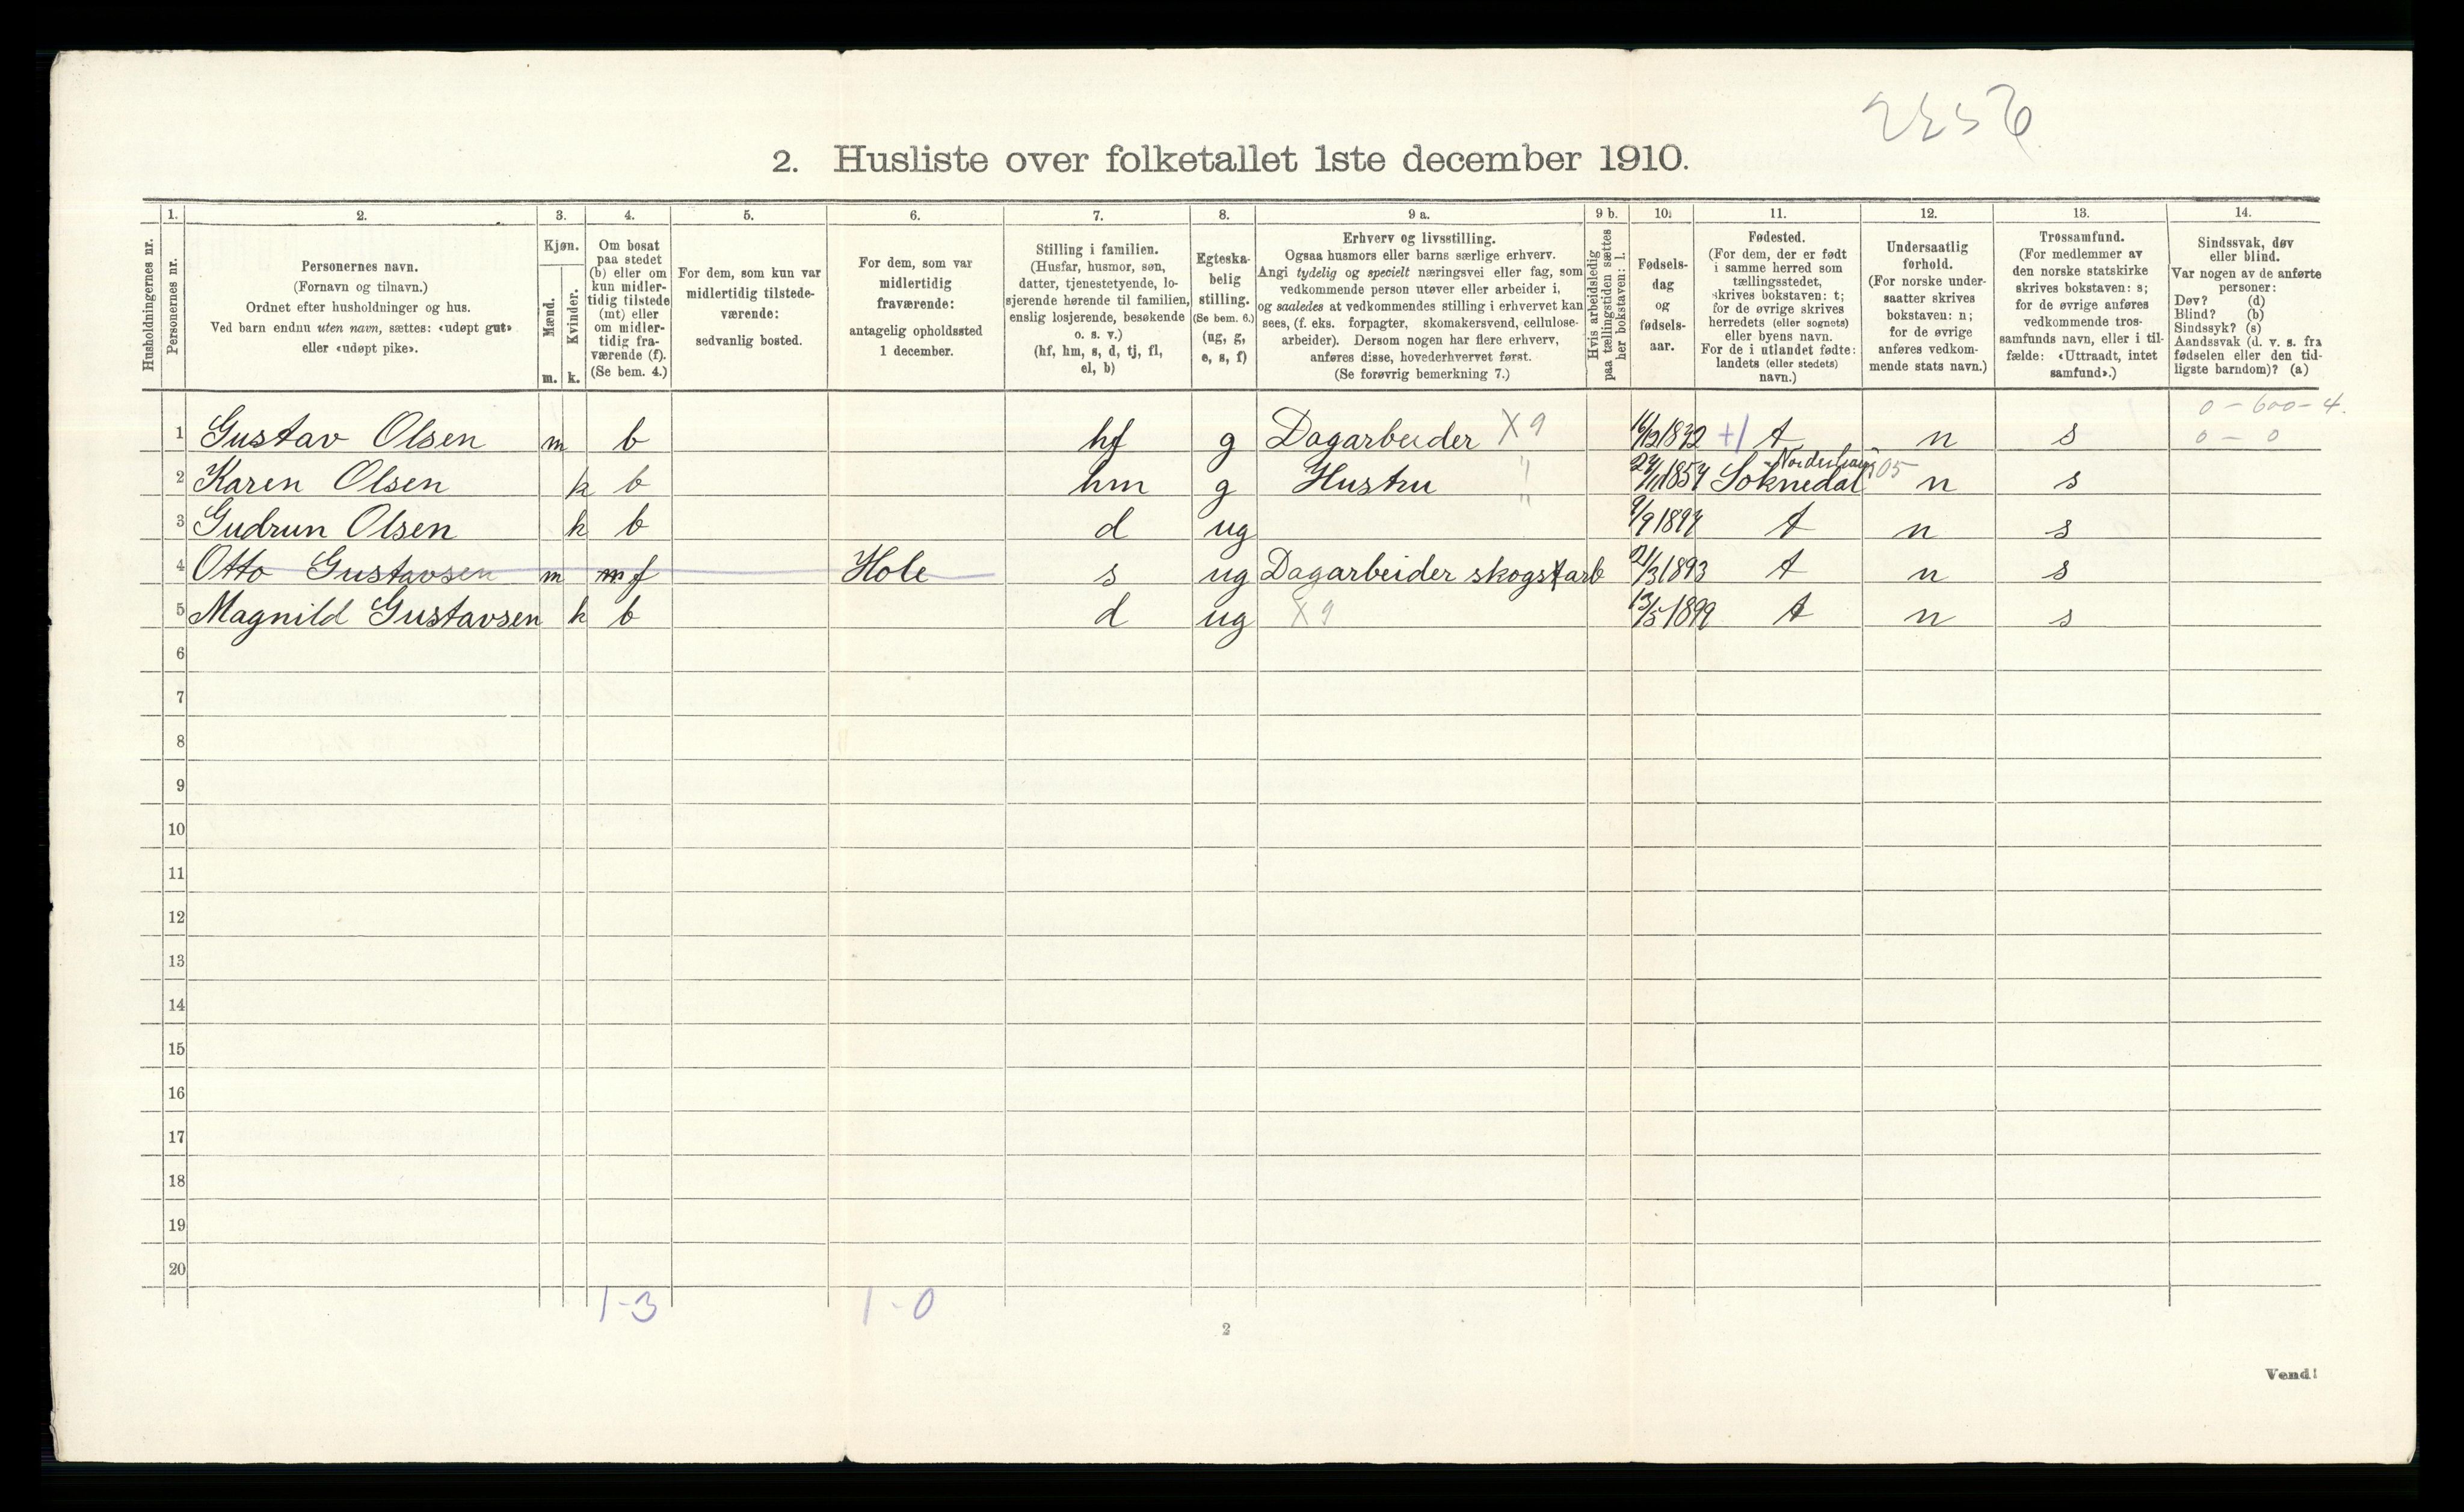 2. Husliste over folketallet 1ste december 1910.
Husholdningernes nr.
1. Personernes nr.
2. Personernes navn.
(Fornavn og tilnavn.)
Ordnet efter husholdninger og hus.
Ved barn endnu uten navn, sættes: «udøpt gut»
eller «udøpt pike».
3. Kjøn.
Mænd. m.
Kvinder. k.
4. Om bosat
paa stedet
(b) eller om
kun midler-
tidig tilstede
(mt) eller
om midler-
tidig fra-
værende (f).
(Se bem. 4.)
5. For dem, som kun var
midlertidig tilstede-
værende:
sedvanlig bosted.
6. For dem, som var
midlertidig
fraværende:
antagelig opholdssted
1 december.
7. Stilling i familien.
(Husfar, husmor, søn,
datter, tjenestetyende, lo-
sjerende hørende til familien,
enslig losjerende, besøkende
o. s. v.)
(hf, hm, s, d, tj, fl,
el, b)
8. Egteska-
belig
stilling.
(Se bem. 6.)
(ug, g,
e, s, f)
9 a. Erhverv og livsstilling.
Ogsaa husmors eller barns særlige erhverv.
Angi tydelig og specielt næringsvei eller fag, som
vedkommende person utøver eller arbeider i,
og saaledes at vedkommendes stilling i erhvervet kan
sees, (f. eks. forpagter, skomakersvend, cellulose-
arbeider). Dersom nogen har flere erhverv,
anføres disse, hovederhvervet først.
(Se forøvrig bemerkning 7.)
9 b. Hvis arbeidsledig
paa tællingstiden sættes
her bokstaven: l.
10. Fødsels-
dag
og
fødsels-
aar.
11. Fødested.
(For dem, der er født
i samme herred som
tællingsstedet,
skrives bokstaven: t;
for de øvrige skrives
herredets (eller sognets)
eller byens navn.
For de i utlandet fødte:
landets (eller stedets)
navn.)
12. Undersaatlig
forhold.
(For norske under-
saatter skrives
bokstaven: n;
for de øvrige
anføres vedkom-
mende stats navn.)
13. Trossamfund.
(For medlemmer av
den norske statskirke
skrives bokstaven: s;
for de øvrige anføres
vedkommende tros-
samfunds navn, eller i til-
fælde: «Uttraadt, intet
samfund».)
14. Sindssvak, døv
eller blind.
Var nogen av de anførte
personer:
Døv? (d)
Blind? (b)
Sindssyk? (s)
Aandssvak (d. v. s. fra
fødselen eller den tid-
ligste barndom)? (a)
0 - 600 - 4.
1 Gustav Olsen m b hf g Dagarbeider X 9 t n s 0 - 0
2 Karen Olsen k b hm g Hustru " Soknedal 05 n s
3 Gudrun Olsen k b d ug " t n s
4 Otto Gustavsen m f Hole s ug Dagarbeider 21/3 1893 t n s
5 Magnild Gustavsen k b d ug X 9 13/5 1899 t n s
6
7
8
9
10
11
12
13
14
15
16
17
18
19
20
1-3 1-0
2
Vend!